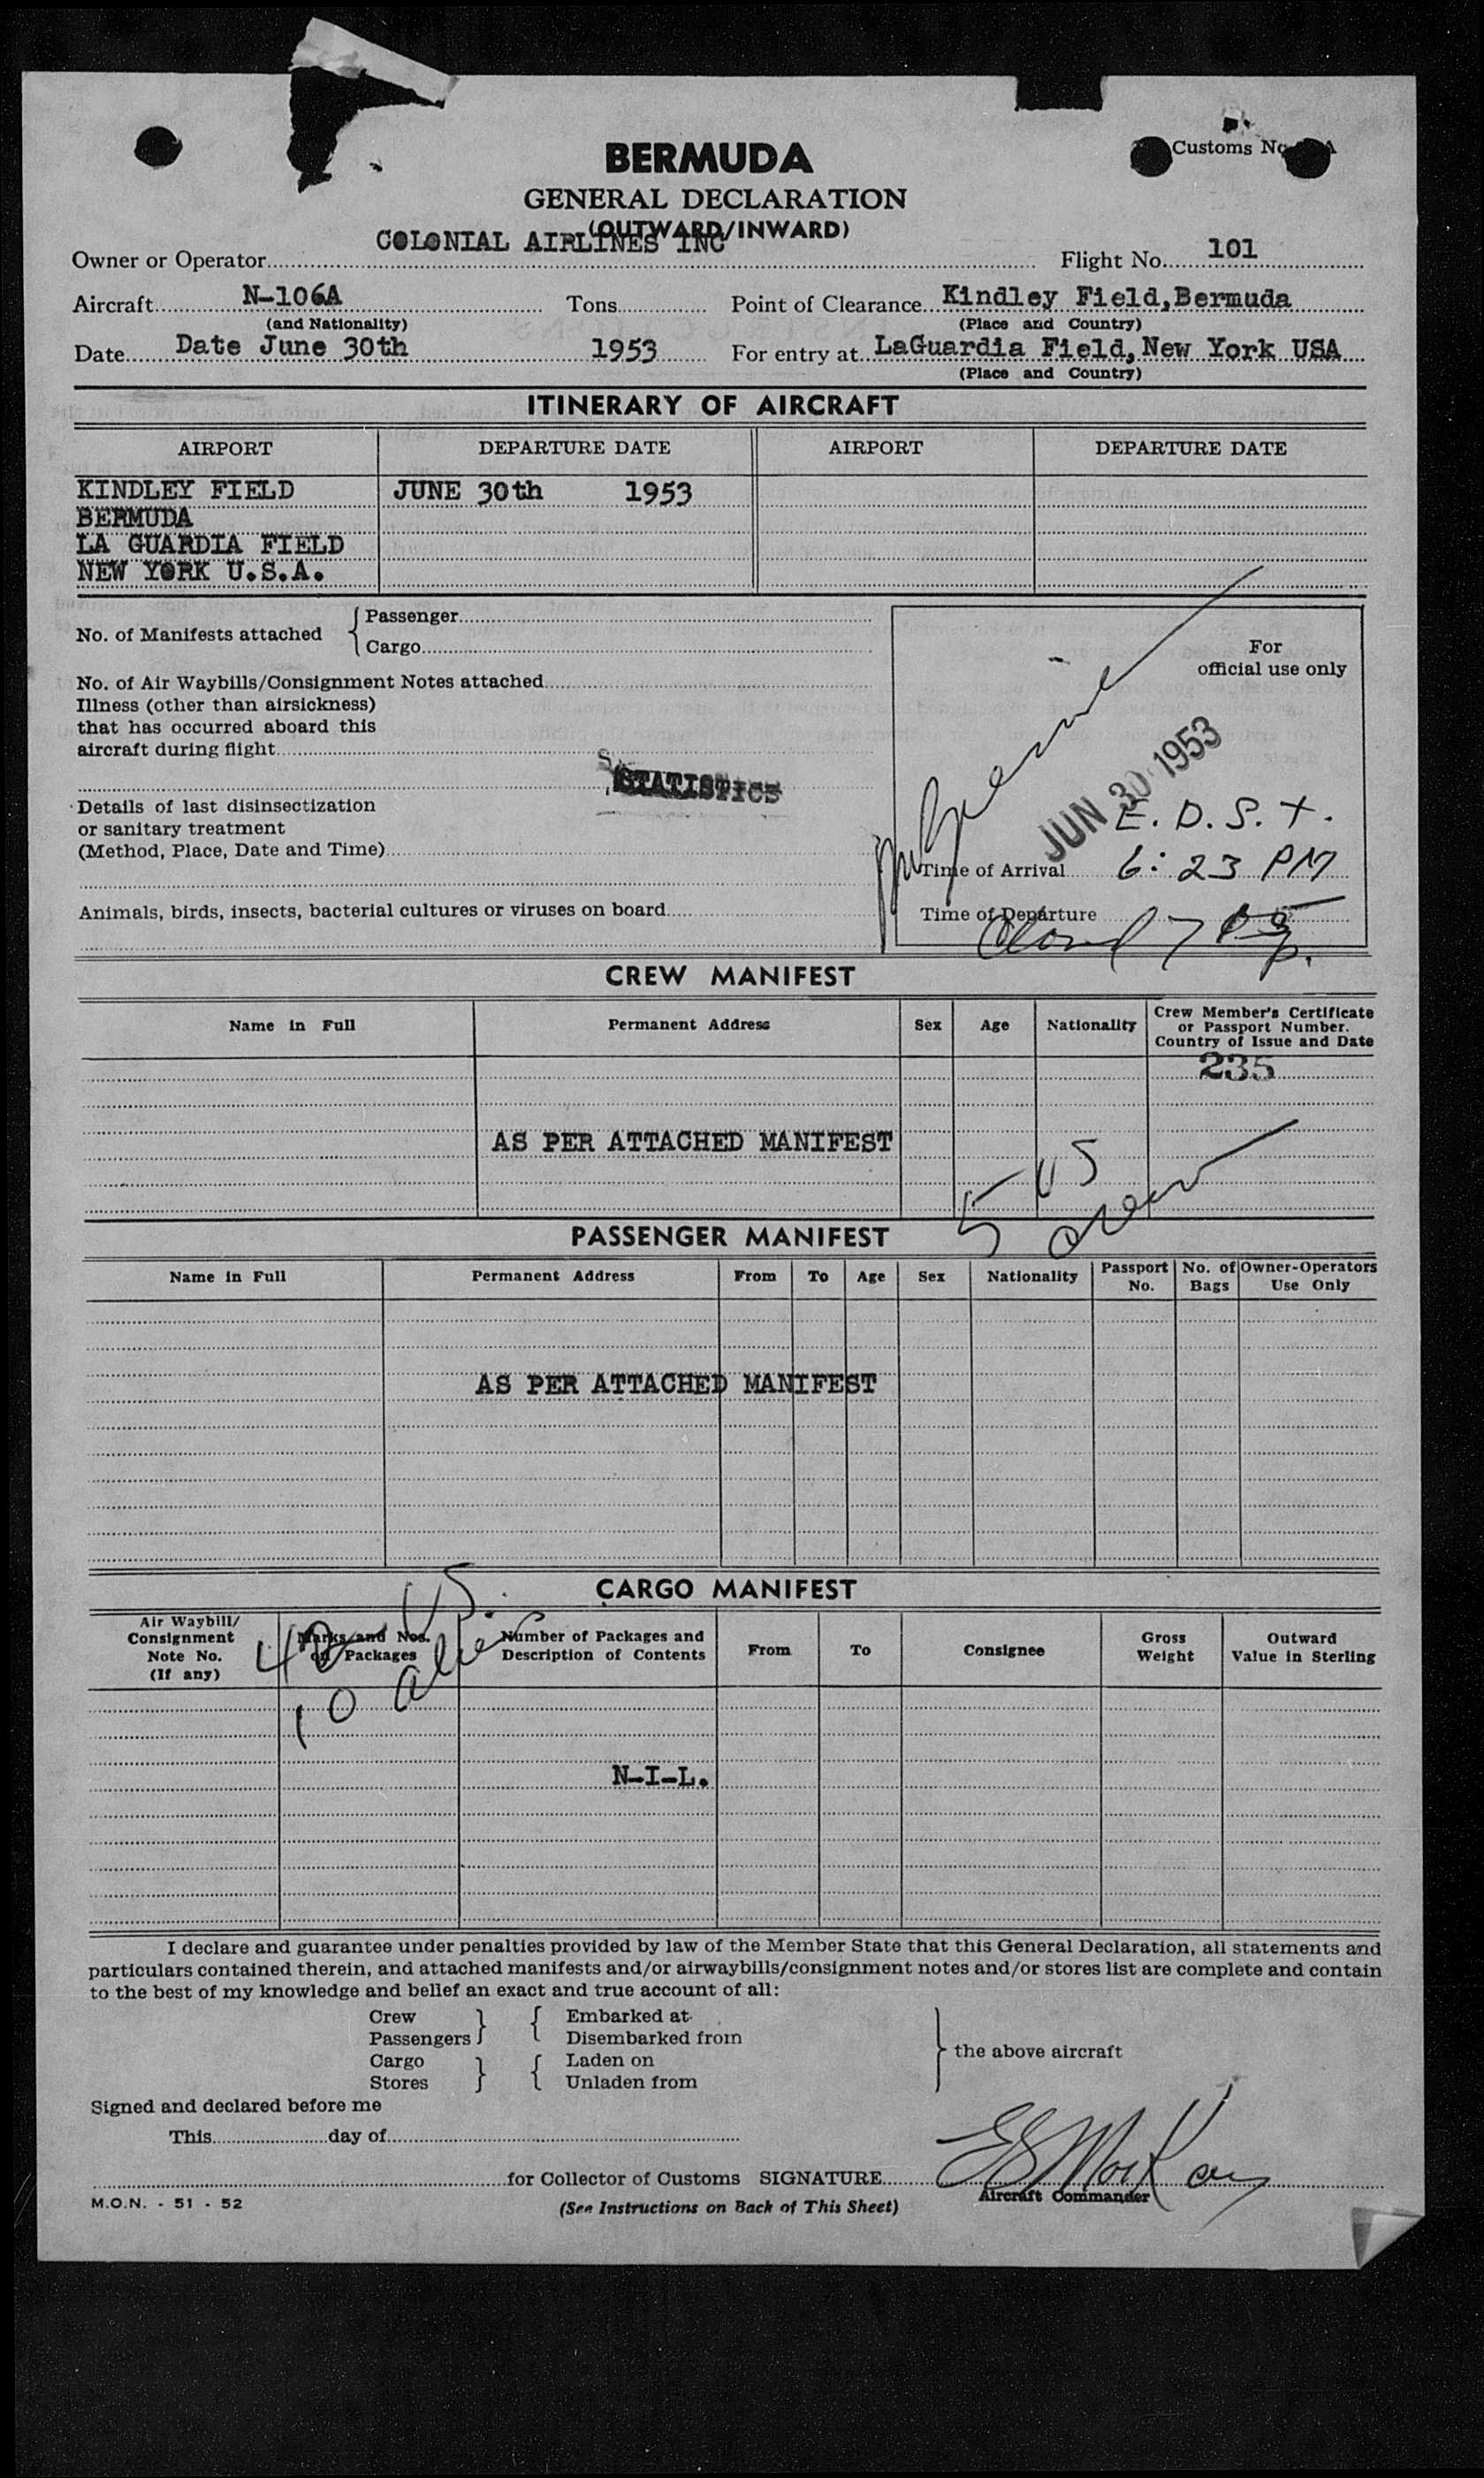 Customs No
BERMUDA
GENERAL DECLARATION
(OUTWARD/INWARD)
Owner or Operator COLONIAL AIRLINES INC Flight No. 101
Aircraft N-106A Tons Point of Clearance Kindley Field, Bermuda
(and Nationality) (Place and Country)
Date Date June 30th 1953 For entry at LaGuardia Field, New York USA
(Place and Country)
ITINERARY OF AIRCRAFT
AIRPORT DEPARTURE DATE AIRPORT DEPARTURE DATE
KINDLEY FIELD JUNE 30th 1953
BERMUDA
LA GUARDIA FIELD
NEW YORK U.S.A.
No. of Manifests attached
Passenger
Cargo
For
official use only
No. of Air Waybills/Consignment Notes attached
Illness (other than airsickness)
that has occurred aboard this
aircraft during flight
STATISTICS
JUN 30 1953
Details of last disinsectization
or sanitary treatment
(Method, Place, Date and Time)
E.D.S.T.
Time of Arrival 6:23 PM
Animals, birds, insects, bacterial cultures or viruses on board
Time of Departure
CREW MANIFEST
Name in Full Permanent Address Sex Age Nationality Crew Member's Certificate
or Passport Number.
Country of Issue and Date
235
AS PER ATTACHED MANIFEST
5 US
Crew
PASSENGER MANIFEST
Name in Full Permanent Address From To Age Sex Nationality Passport No. No. of Bags Owner-Operators Use Only
AS PER ATTACHED MANIFEST
CARGO MANIFEST
US.
40
10
Air Waybill/
Consignment
Note No.
(If any)
Marks and Nos.
on Packages
Number of Packages and
Description of Contents
From To Consignee Gross Weight Outward Value in Sterling
N-I-L.
I declare and guarantee under penalties provided by law of the Member State that this General Declaration, all statements and
particulars contained therein, and attached manifests and/or airwaybills/consignment notes and/or stores list are complete and contain
to the best of my knowledge and belief an exact and true account of all:
Crew Embarked at
Passengers Disembarked from
Cargo Laden on
Stores Unladen from
the above aircraft
Signed and declared before me
This day of
for Collector of Customs SIGNATURE
Aircraft Commander
M.O.N. - 51 - 52
(See Instructions on Back of This Sheet)